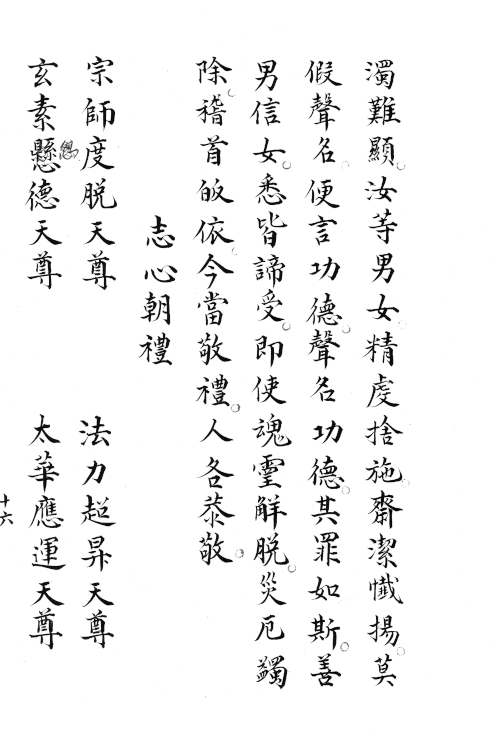 濁難顯。汝等男女精虔捨施。齋潔懺揚。莫
假聲名。便言功德。聲名功德。其罪如斯。善
男信女。悉皆諦受。即使魂霊解脫。災厄蠲
除。稽首皈依。今當敬禮。人各恭敬。
志心朝禮
宗師度脫天尊　法力超昇天尊
玄素懸德天尊　太華應運天尊
十六